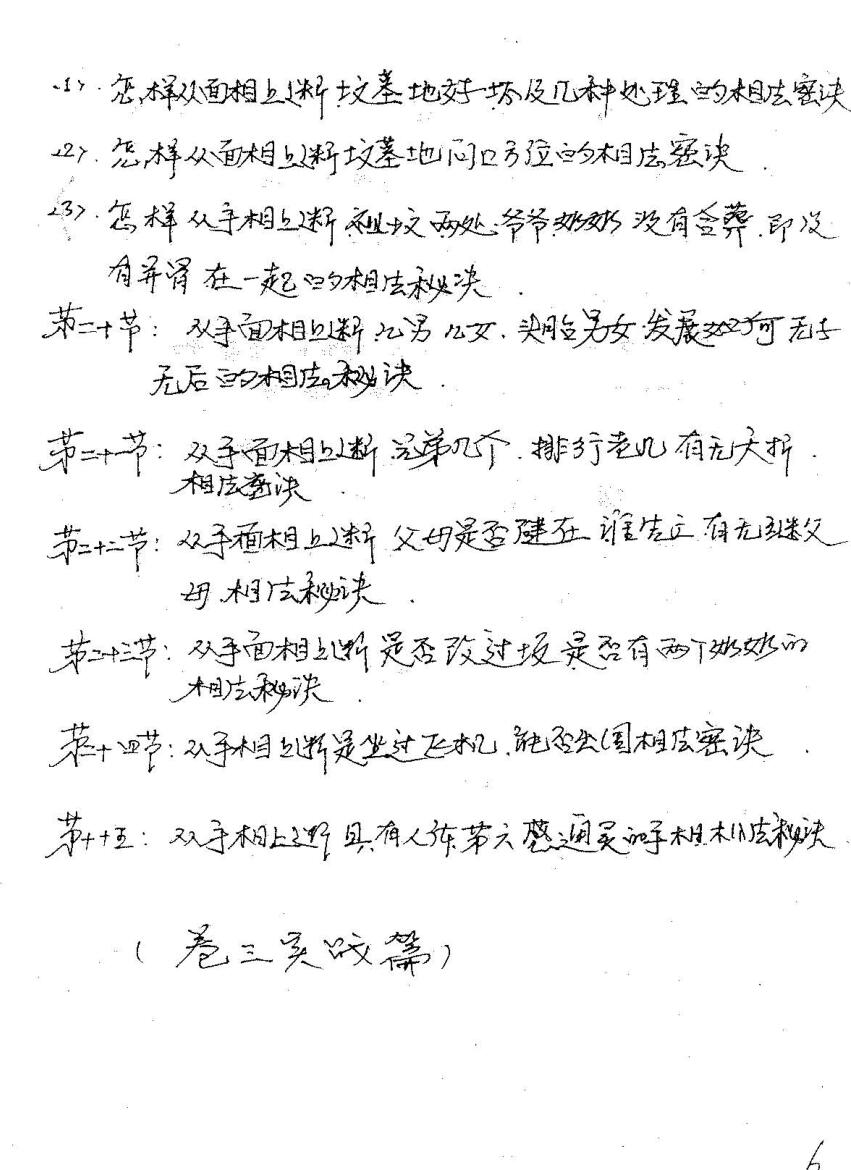 <1>. 怎样从面相上断坟墓地好坏及几种处理的相法密诀
<2>. 怎样从面相上断坟墓地门口方位的相法密诀.
<3>. 怎样从手相上断祖坟两处.爷爷奶奶没有合葬.即没
有并肾在一起的相法秘决.
第二十节: 从手面相上断几男几女.头胎男女.发展如何无子
无后的相法秘诀.
第二十一节: 从手面相上断兄弟几个.排行老几有无夭折.
相法密诀.
第二十二节: 从手面相上断父母是否健在 谁先亡 有无继父
母.相法秘诀.
第二十三节: 从手面相上断是否改过坟是否有两个奶奶的
相法秘诀.
第二十四节: 从手相上断是坐过飞机.能否出国相法密诀.
第二十五: 从手相上断具有人体第六感通灵的手相相法秘诀
(卷三实 篇)
6